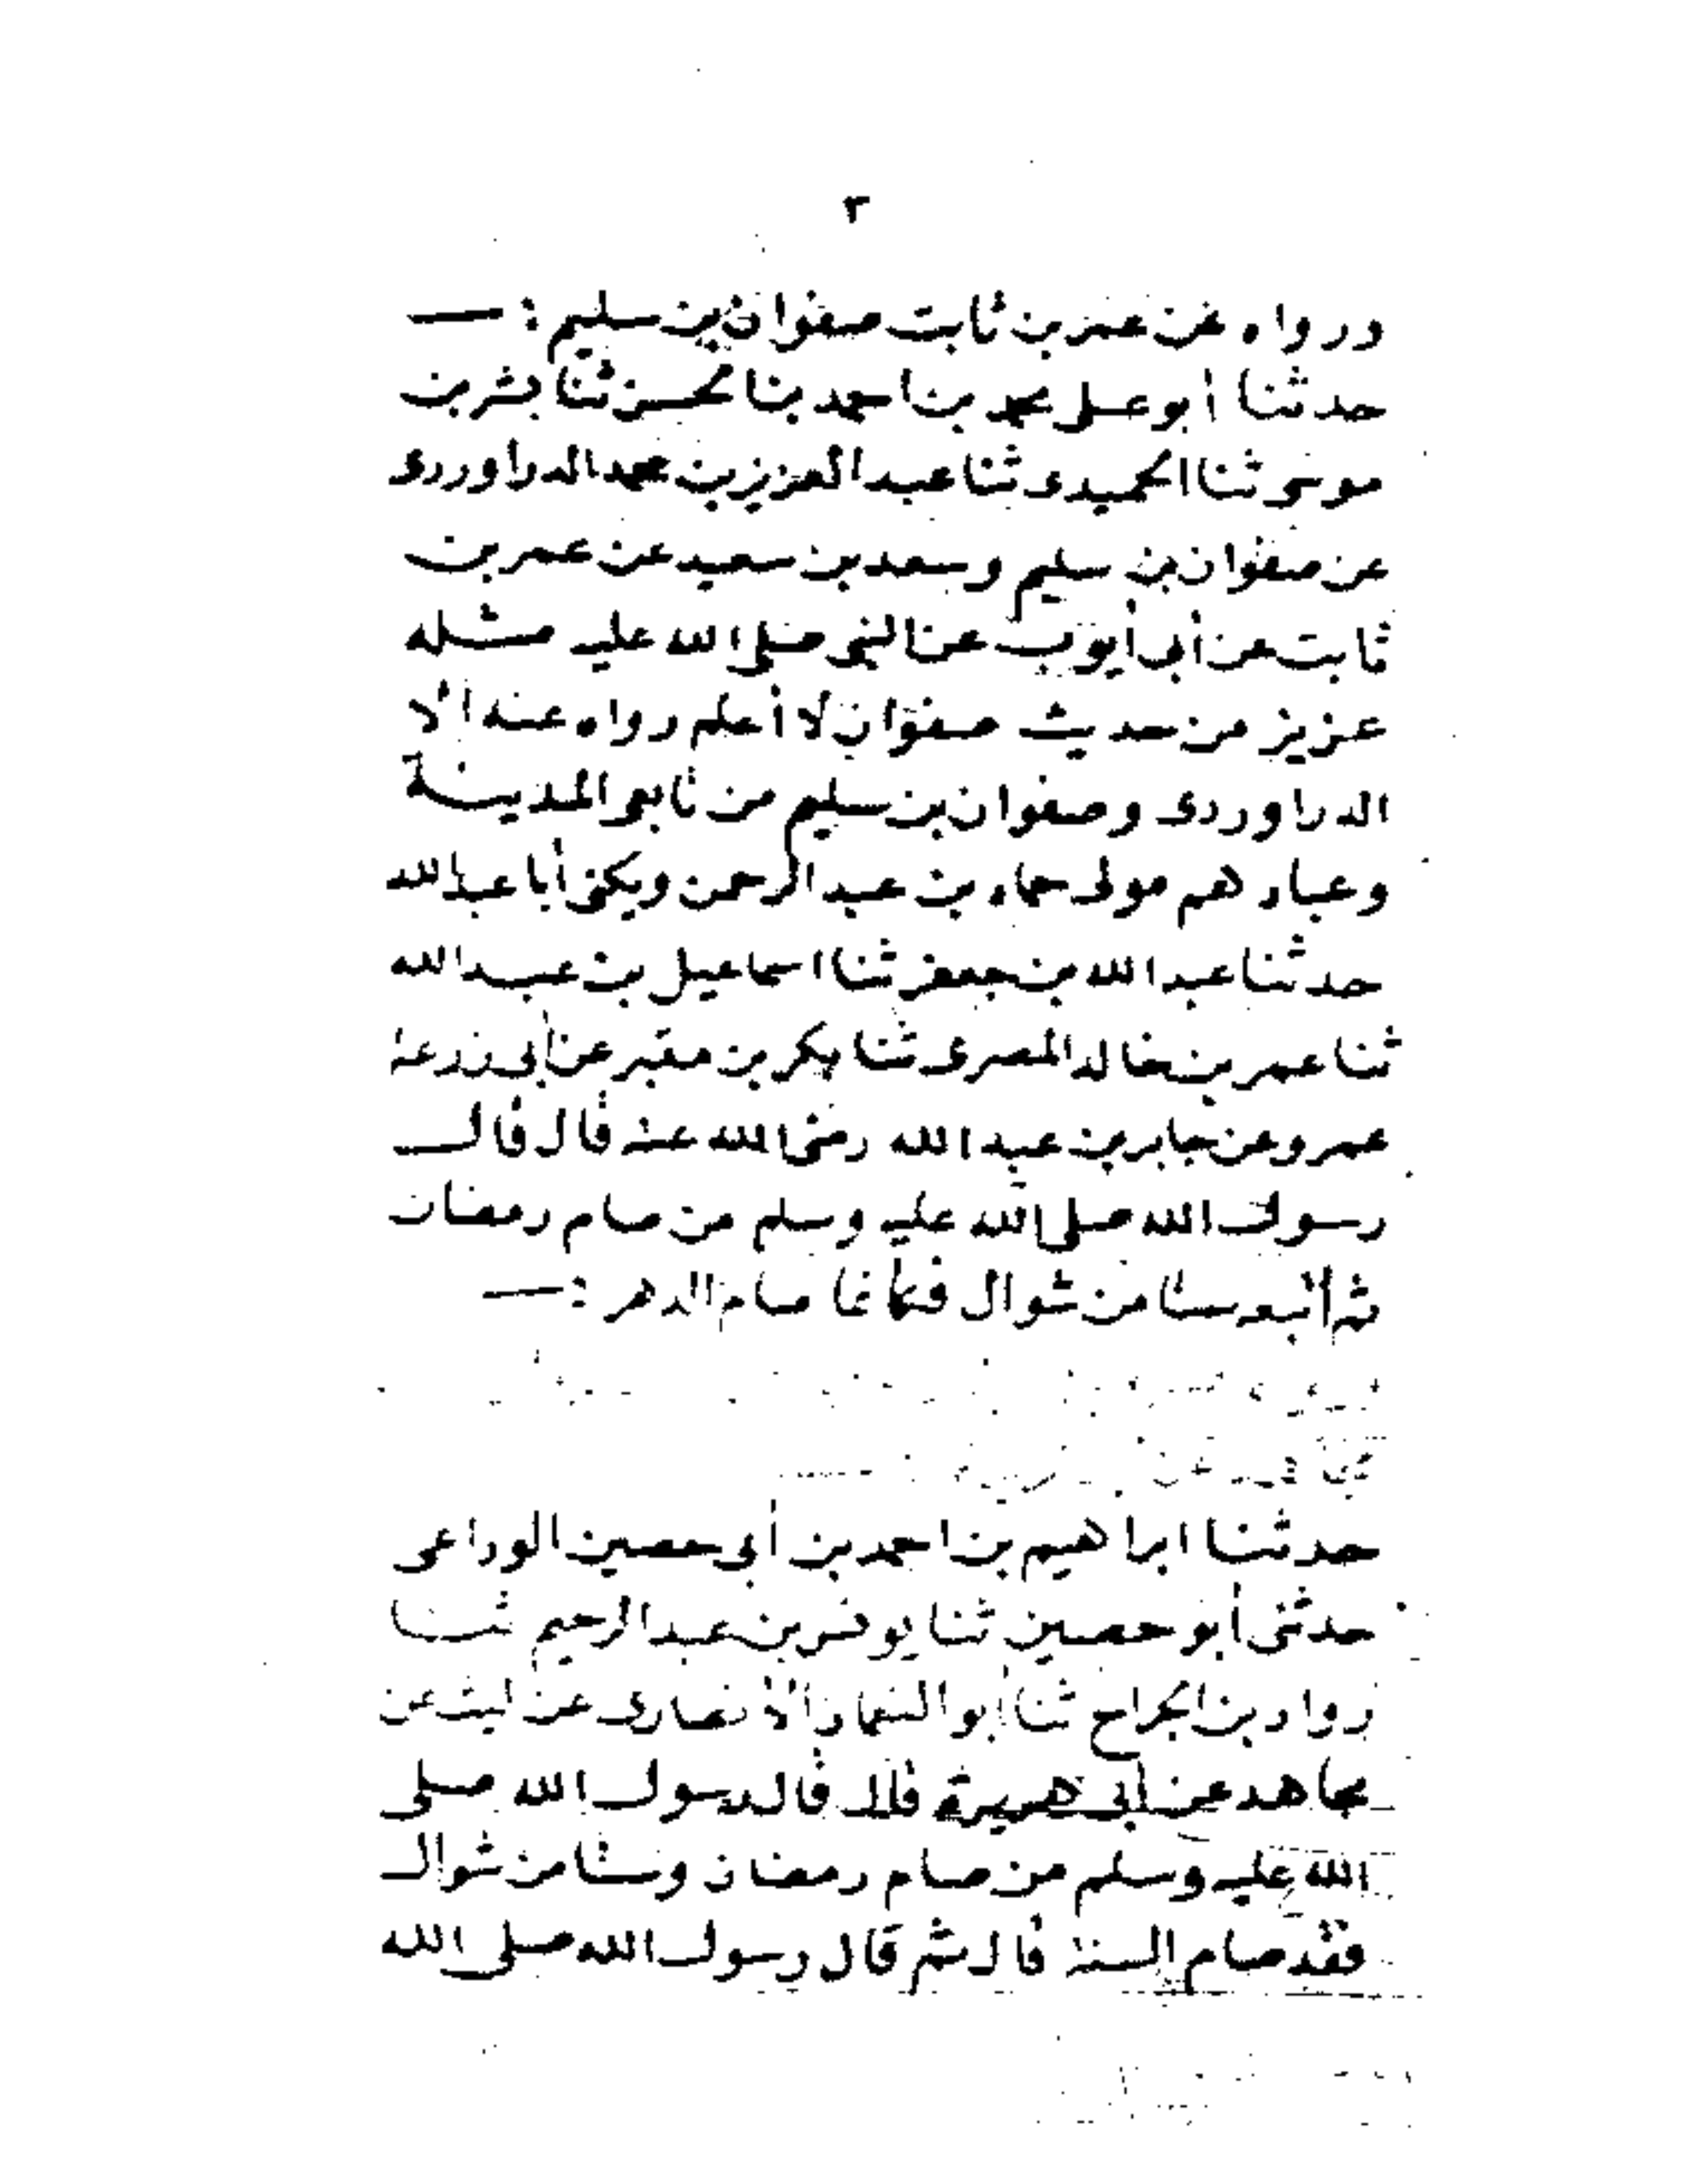 ٣
ورواه عن عمر بن ثابت صفوان بن سليم :—
حدثنا أبو على محمد بن احمد بنا لحسن ثنا بشر بن
موسى ثنا الحميدى ثنا عبد العزيز بن محمد الدراوردى
عن صفوان بن سليم وسعد بن سعيد عن عمر بن
ثابت عن أبى أيوب عن النبى صلى الله عليه مثله
عزيز من حديث صفوان لا أعلم رواه عنه الا
الدراوردى وصفوان بن سليم من تابعى المدينة
وعبادهم مولى حماد بن عبد الرحمن ويكنى أبا عبد الله
حدثنا عبد الله بن جعفر ثنا اسماعيل بن عبد الله
ثنا عمر بن خالد المصرى ثنا بكر بن مقبر عن أبى زرعة
عمرو عن جابر بن عبد الله رضى الله عنه قال قال
رسول الله صلى الله عليه وسلم من صام رمضان
ثم أتبعه ستا من شوال فكانما صام الدهر :—
حدثنا ابراهيم بن احمد بن أبى حصين الوداعى
حدثنى أبو حصين ثنا يونس بن عبد الرحيم ثنا
رواد بن الجراح ثنا أبو النعمان الانصارى عن ليث عن
مجاهد عن أبى هريرة قال قال رسول الله صلى
الله عليه وسلم من صام رمضان وستا من شوال
فقد صام السنة قال ثم قال رسول الله صلى الله